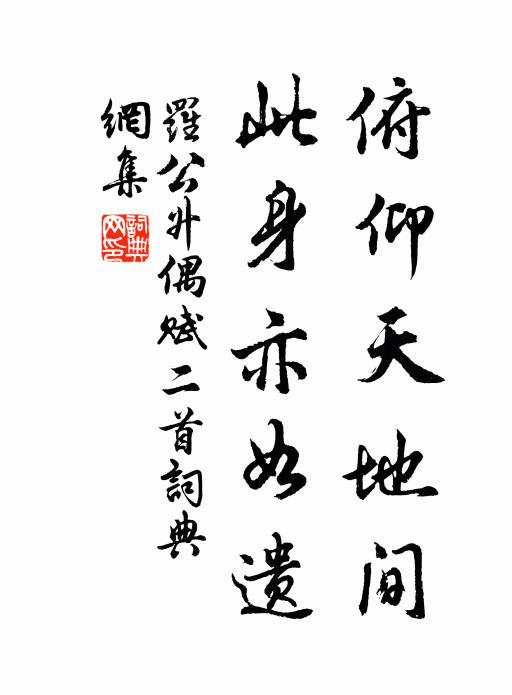 俯仰天地间
此身亦如遗
羅公升偶赋二首詞典
網集
詞典网印